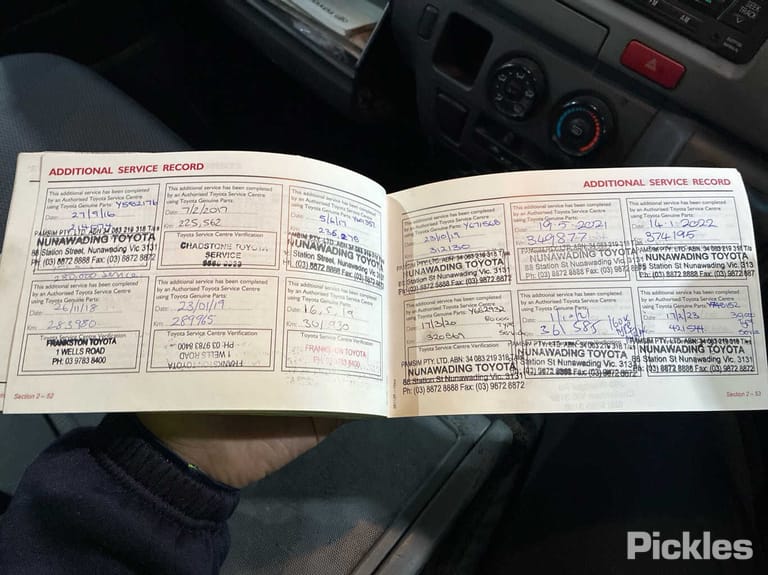 ADDITIONAL SERVICE RECORD
This additional service has been completed
by an Authorised Toyota Service Centre
using Toyota Genuine Parts:
Date: 27/9/16
NUNAWADING TOYOTA
88 Station Street, Nunawading Vic 3131
Ph: (03) 8872 8888 Fax: (03) 9872 8872
This additional service has been completed
by an Authorised Toyota Service Centre
using Toyota Genuine Parts:
Date: 7/2/2017
Km: 225,562
Toyota Service Centre Verification
CHADSTONE TOYOTA
SERVICE
This additional service has been completed
by an Authorised Toyota Service Centre
using Toyota Genuine Parts:
Date: 5/6/17
236,278
NUNAWADING TOYOTA
Station Street, Nunawading Vic. 3131
(03) 8872 8888 Fax: (03) 9872 8872
This additional service has been completed
by an Authorised Toyota Service Centre
using Toyota Genuine Parts:
Date: 26/11/18
Km: 283980
Toyota Service Centre Verification
FRANKSTON TOYOTA
1 WELLS ROAD
PH: 03 9783 8400
This additional service has been completed
by an Authorised Toyota Service Centre
using Toyota Genuine Parts:
Date: 23/01/19
Km: 289965
Toyota Service Centre Verification
FRANKSTON TOYOTA
1 WELLS ROAD
PH: 03 9783 8400
This additional service has been completed
by an Authorised Toyota Service Centre
using Toyota Genuine Parts:
Date: 16.5.19
Km: 301930
Toyota Service Centre Verification
FRANKSTON TOYOTA
1 WELLS ROAD
PH: 03 9783 8400
Section 2 – 52
ADDITIONAL SERVICE RECORD
This additional service has been completed
by an Authorised Toyota Service Centre
using Toyota Genuine Parts: Y671568
Date: 23/10/19
312130
PAMSM PTY. LTD. ABN: 34 083 219 318
NUNAWADING TOYOTA
88 Station St Nunawading Vic. 3131
Ph: (03) 8872 8888 Fax: (03) 9872 8872
This additional service has been completed
by an Authorised Toyota Service Centre
using Toyota Genuine Parts:
Date: 19.5.2021
Km: 349877
PAMSM PTY. LTD. ABN: 34 083 219 318
NUNAWADING TOYOTA
This additional service has been completed
by an Authorised Toyota Service Centre
using Toyota Genuine Parts:
Date: 14.1.2022
Km: 374195
PAMSM PTY. LTD. ABN: 34 083 219 318
NUNAWADING TOYOTA
88 Station St Nunawading Vic. 3131
Ph: (03) 8872 8888 Fax: (03) 9872 8872
This additional service has been completed
by an Authorised Toyota Service Centre
using Toyota Genuine Parts:
Date: 17/3/20
PAMSM PTY. LTD. ABN: 34 083 219 318
NUNAWADING TOYOTA
88 Station St Nunawading Vic. 3131
Ph: (03) 8872 8888 Fax: (03) 9872 8872
This additional service has been completed
by an Authorised Toyota Service Centre
using Toyota Genuine Parts:
361,585
PAMSM PTY. LTD. ABN: 34 083 219 318
NUNAWADING TOYOTA
88 Station St Nunawading Vic. 3131
Ph: (03) 8872 8888 Fax: (03) 9872 8872
This additional service has been completed
by an Authorised Toyota Service Centre
using Toyota Genuine Parts:
Date: 17/2/23
PAMSM PTY. LTD. ABN: 34 083 219 318
NUNAWADING TOYOTA
88 Station St Nunawading Vic. 3131
Ph: (03) 8872 8888 Fax: (03) 9872 8872
Section 2 – 53
Pickles